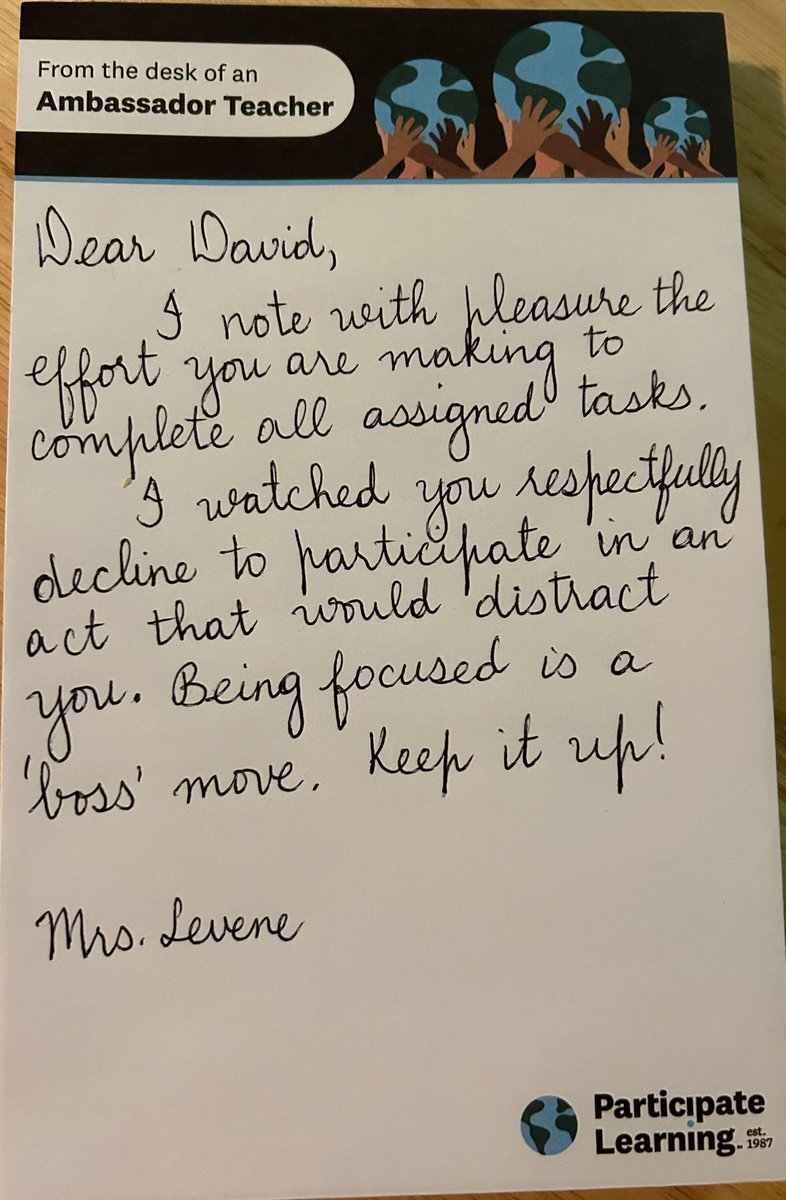 From the desk of an
Ambassador Teacher
Dear David,
I note with pleasure the
effort you are making to
complete all assigned tasks.
I watched you respectfully
decline to participate in an
act that would distract
you. Being focused is a
'boss' move. Keep it up!
Mrs. Levene
Participate
Learning est. 1987